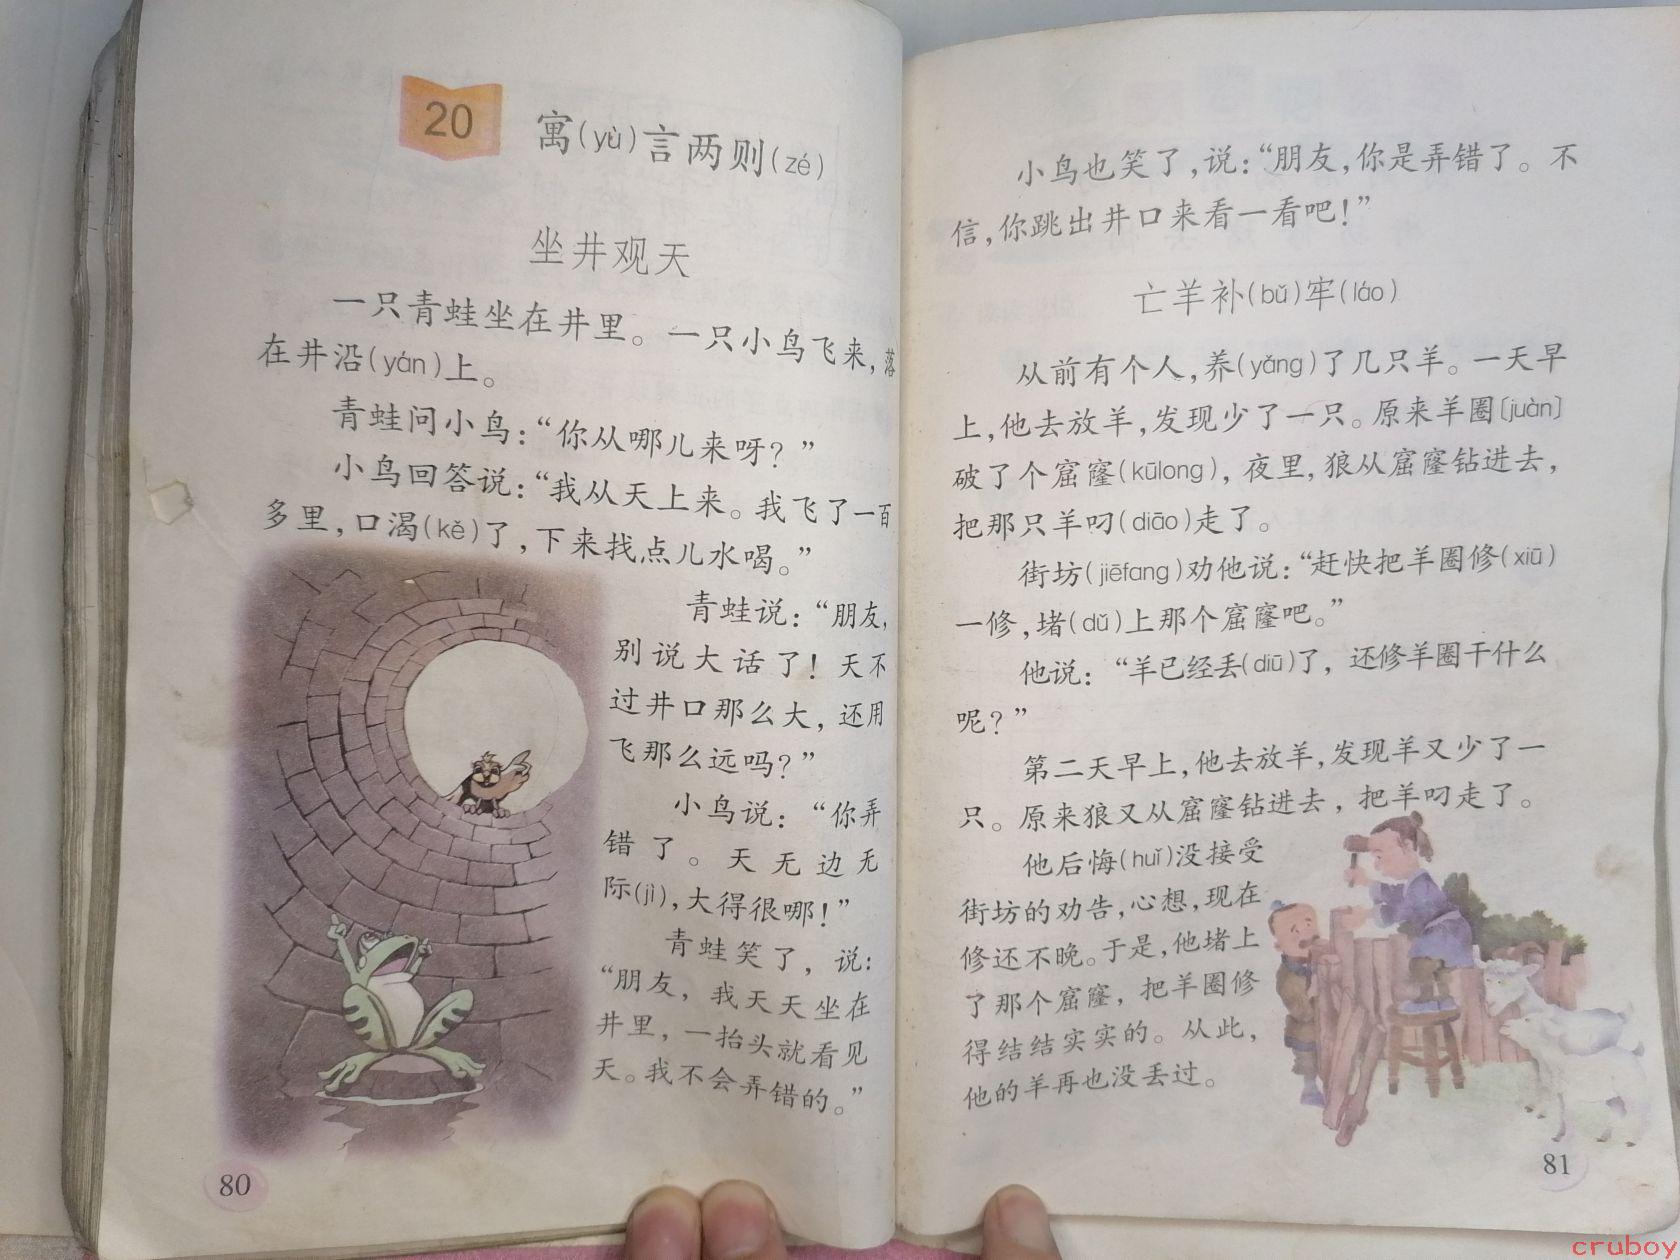 20
寓(yù)言两则(zé)
坐井观天
一只青蛙坐在井里。一只小鸟飞来,落
在井沿(yán)上。
青蛙问小鸟:“你从哪儿来呀?”
小鸟回答说:“我从天上来。我飞了一百
多里,口渴(kě)了,下来找点儿水喝。”
青蛙说:“朋友,
别说大话了!天不
过井口那么大,还用
飞那么远吗?”
小鸟说:“你弄
错了。天无边无
际(jì),大得很哪!”
青蛙笑了,说:
“朋友,我天天坐在
井里,一抬头就看见
天。我不会弄错的。”
80
小鸟也笑了,说:“朋友,你是弄错了。不
信,你跳出井口来看一看吧!”
亡羊补(bǔ)牢(láo)
从前有个人,养(yǎng)了几只羊。一天早
上,他去放羊,发现少了一只。原来羊圈〔juàn〕
破了个窟窿(kūlong),夜里,狼从窟窿钻进去,
把那只羊叼(diāo)走了。
街坊(jiēfang)劝他说:“赶快把羊圈修(xiū)
一修,堵(dǔ)上那个窟窿吧。”
他说:“羊已经丢(diū)了,还修羊圈干什么
呢?”
第二天早上,他去放羊,发现羊又少了一
只。原来狼又从窟窿钻进去,把羊叼走了。
他后悔(huǐ)没接受
街坊的劝告,心想,现在
修还不晚。于是,他堵上
了那个窟窿,把羊圈修
得结结实实的。从此,
他的羊再也没丢过。
81
cruboy